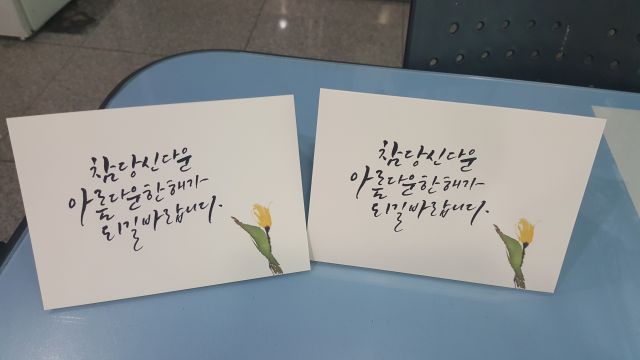 참당신다운
아름다운한해가
되길바랍니다.
참당신다운
아름다운한해가
되길바랍니다.